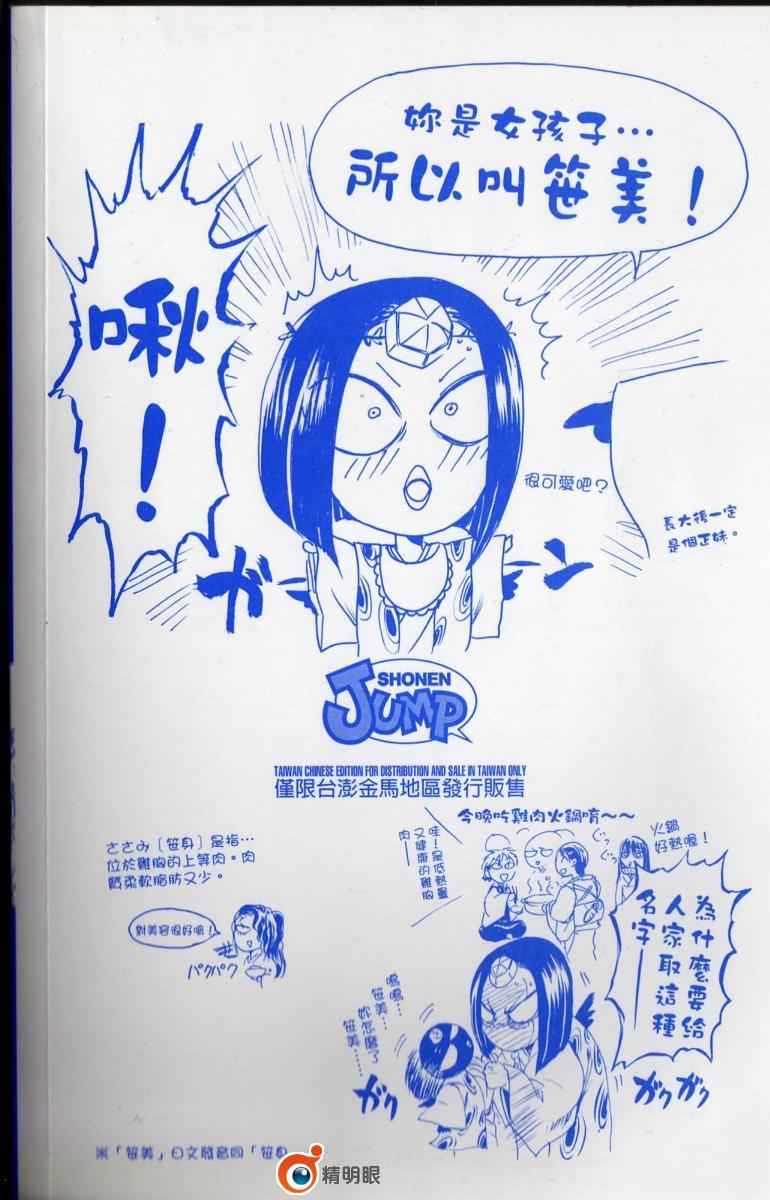 妳是女孩子…
所以叫笹美！
啾！
很可愛吧？
長大後一定
是個正妹。
ガーン
SHONEN
JUMP
TAIWAN CHINESE EDITION FOR DISTRIBUTION AND SALE IN TAIWAN ONLY
僅限台澎金馬地區發行販售
ささみ〔笹身〕是指…
位於雞胸的上等肉。肉
質柔軟脂肪又少。
對美容很好喲！
パクパク
今晚吃雞肉火鍋唷～～
火鍋
好熱喔！
ぐっ
ぐっ
哇！是低熱量
又健康的雞胸
肉——
為什麼要給
人家取這種
名字——
嗚嗚…
笹美…
妳怎麼了
笹美……
ガク
ガクガク
※「笹美」日文發音同「笹身
精明眼